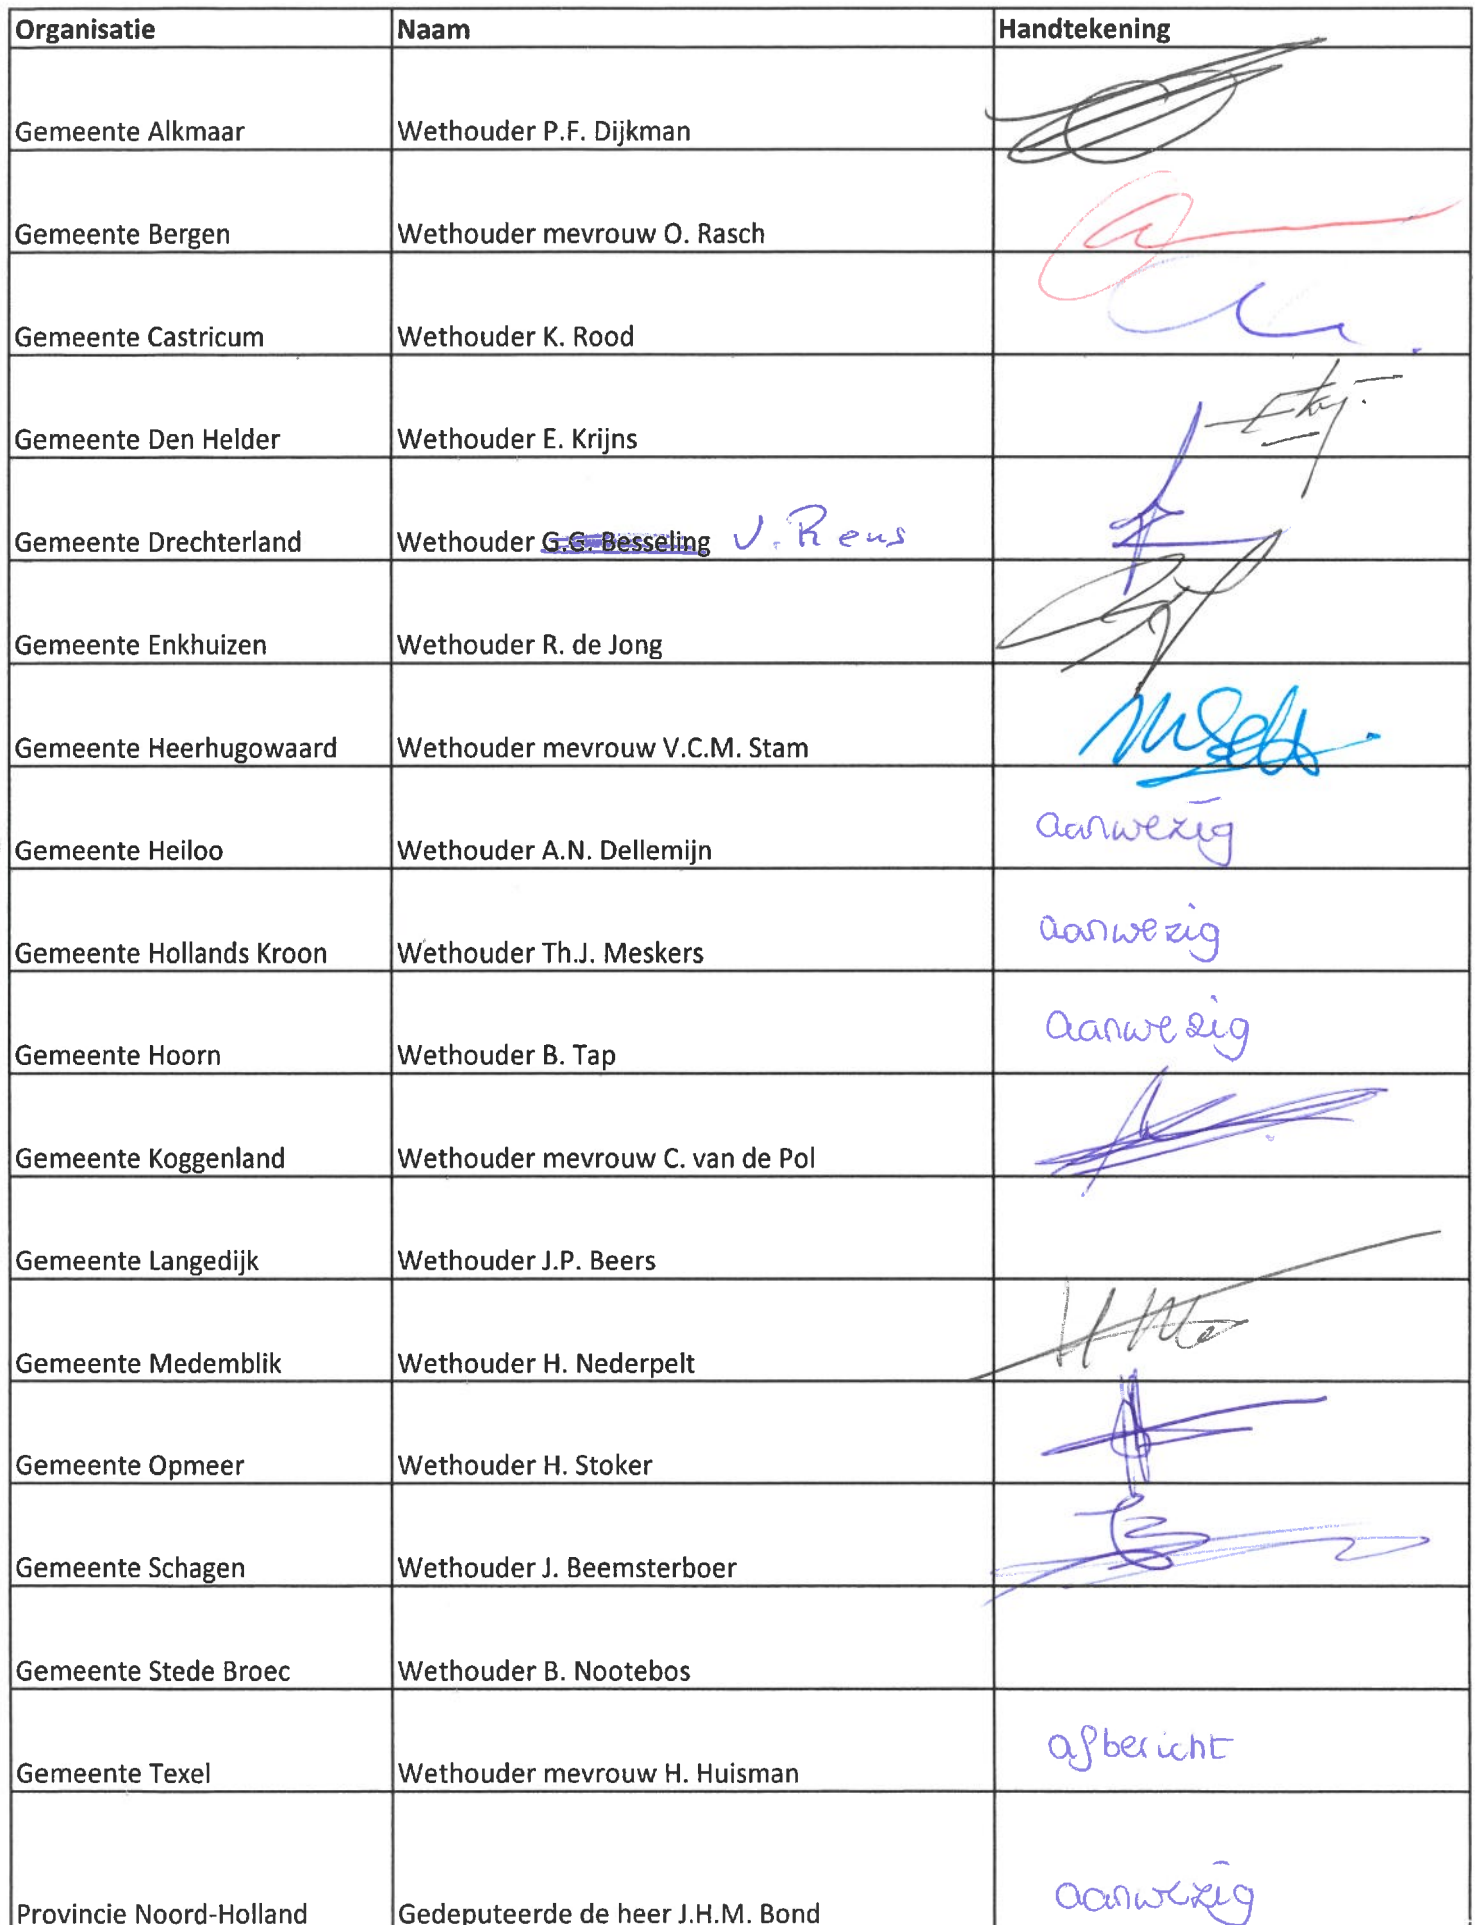 Organisatie Naam Handtekening
Gemeente Alkmaar Wethouder P.F. Dijkman
Gemeente Bergen Wethouder mevrouw O. Rasch
Gemeente Castricum Wethouder K. Rood
Gemeente Den Helder Wethouder E. Krijns
Gemeente Drechterland Wethouder G.G. Besseling
Gemeente Enkhuizen Wethouder R. de Jong
Gemeente Heerhugowaard Wethouder mevrouw V.C.M. Stam
Gemeente Heiloo Wethouder A.N. Dellemijn aanwezig
Gemeente Hollands Kroon Wethouder Th.J. Meskers aanwezig
Gemeente Hoorn Wethouder B. Tap aanwezig
Gemeente Koggenland Wethouder mevrouw C. van de Pol
Gemeente Langedijk Wethouder J.P. Beers
Gemeente Medemblik Wethouder H. Nederpelt
Gemeente Opmeer Wethouder H. Stoker
Gemeente Schagen Wethouder J. Beemsterboer
Gemeente Stede Broec Wethouder B. Nootebos
Gemeente Texel Wethouder mevrouw H. Huisman afbericht
Provincie Noord-Holland Gedeputeerde de heer J.H.M. Bond aanwezig